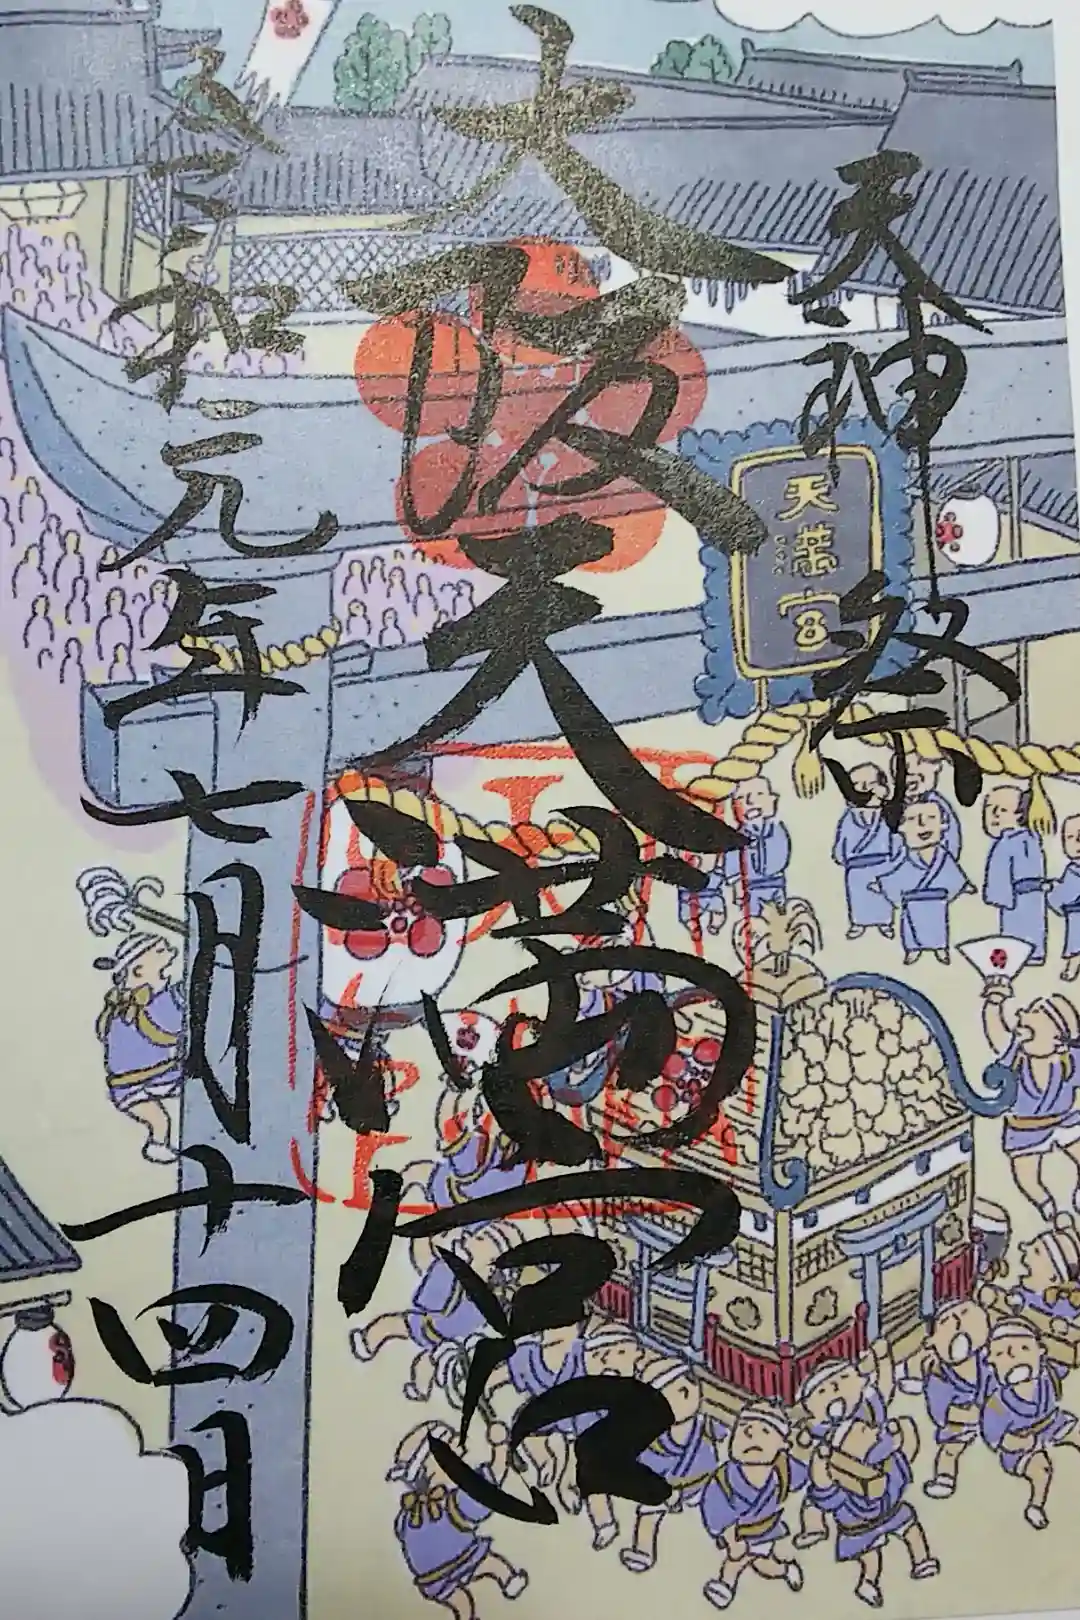 天神祭
大阪天満宮
令和元年七月十四日
天満宮